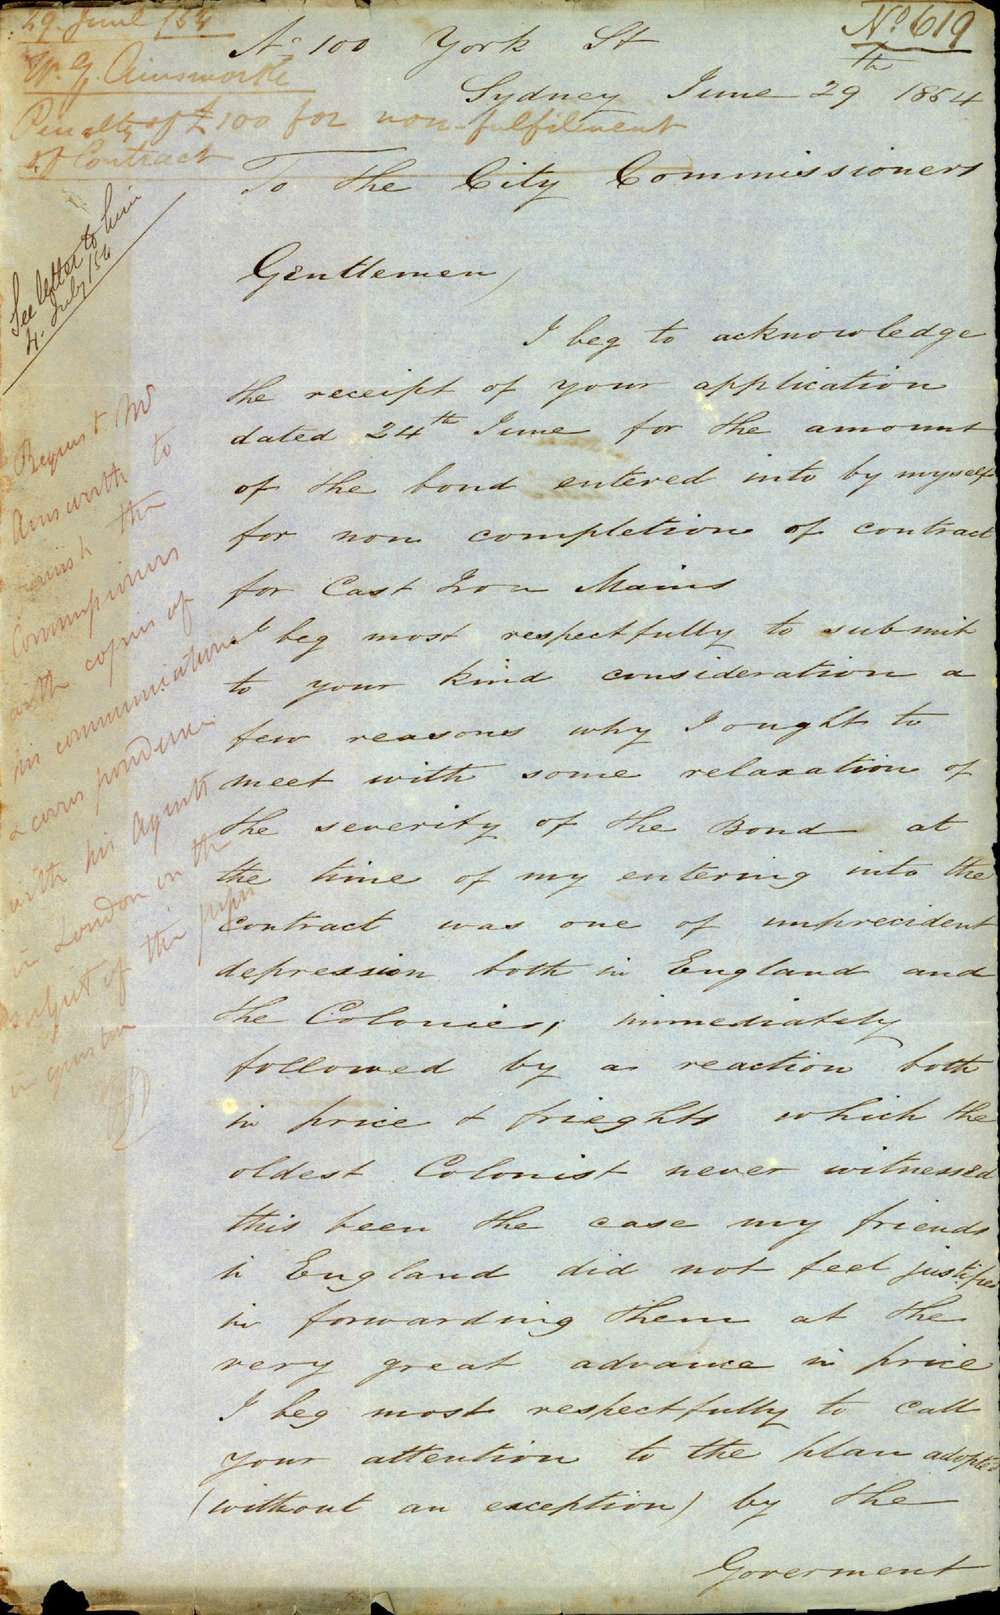 29 June /54
W. G. Ainsworth
Penalty of £100 for non-fulfilment
of Contract
No 619
No 100 York St
Sydney June 29th 1854
To the City Commissioners
See letter to him
4. July /54
Gentlemen,
I beg to acknowledge
the receipt of your application
dated 24th June for the amount
of the bond entered into by myself
for non completion of contract
for Cast Iron Mains
I beg most respectfully to submit
to your kind consideration a
few reasons why I ought to
meet with some relaxation of
the severity of the Bond at
the time of my entering into the
contract was one of unprecident
depression both in England and
the Colonies, immediately
followed by a reaction both
in price & frieghts which the
oldest Colonist never witnessed
this been the case my friends
in England did not feel justified
in forwarding them at the
very great advance in price
I beg most respectfully to call
your attention to the plan adopted
(without an exception) by the
Goverment
Request Mr
Ainsworth to
furnish the
Commissioners
with copies of
his communications
& correspondence
with his Agents
in London on the
subject of the pipes
in question